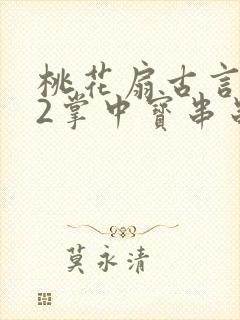 桃花扇古言
2掌中寶串
莫永清